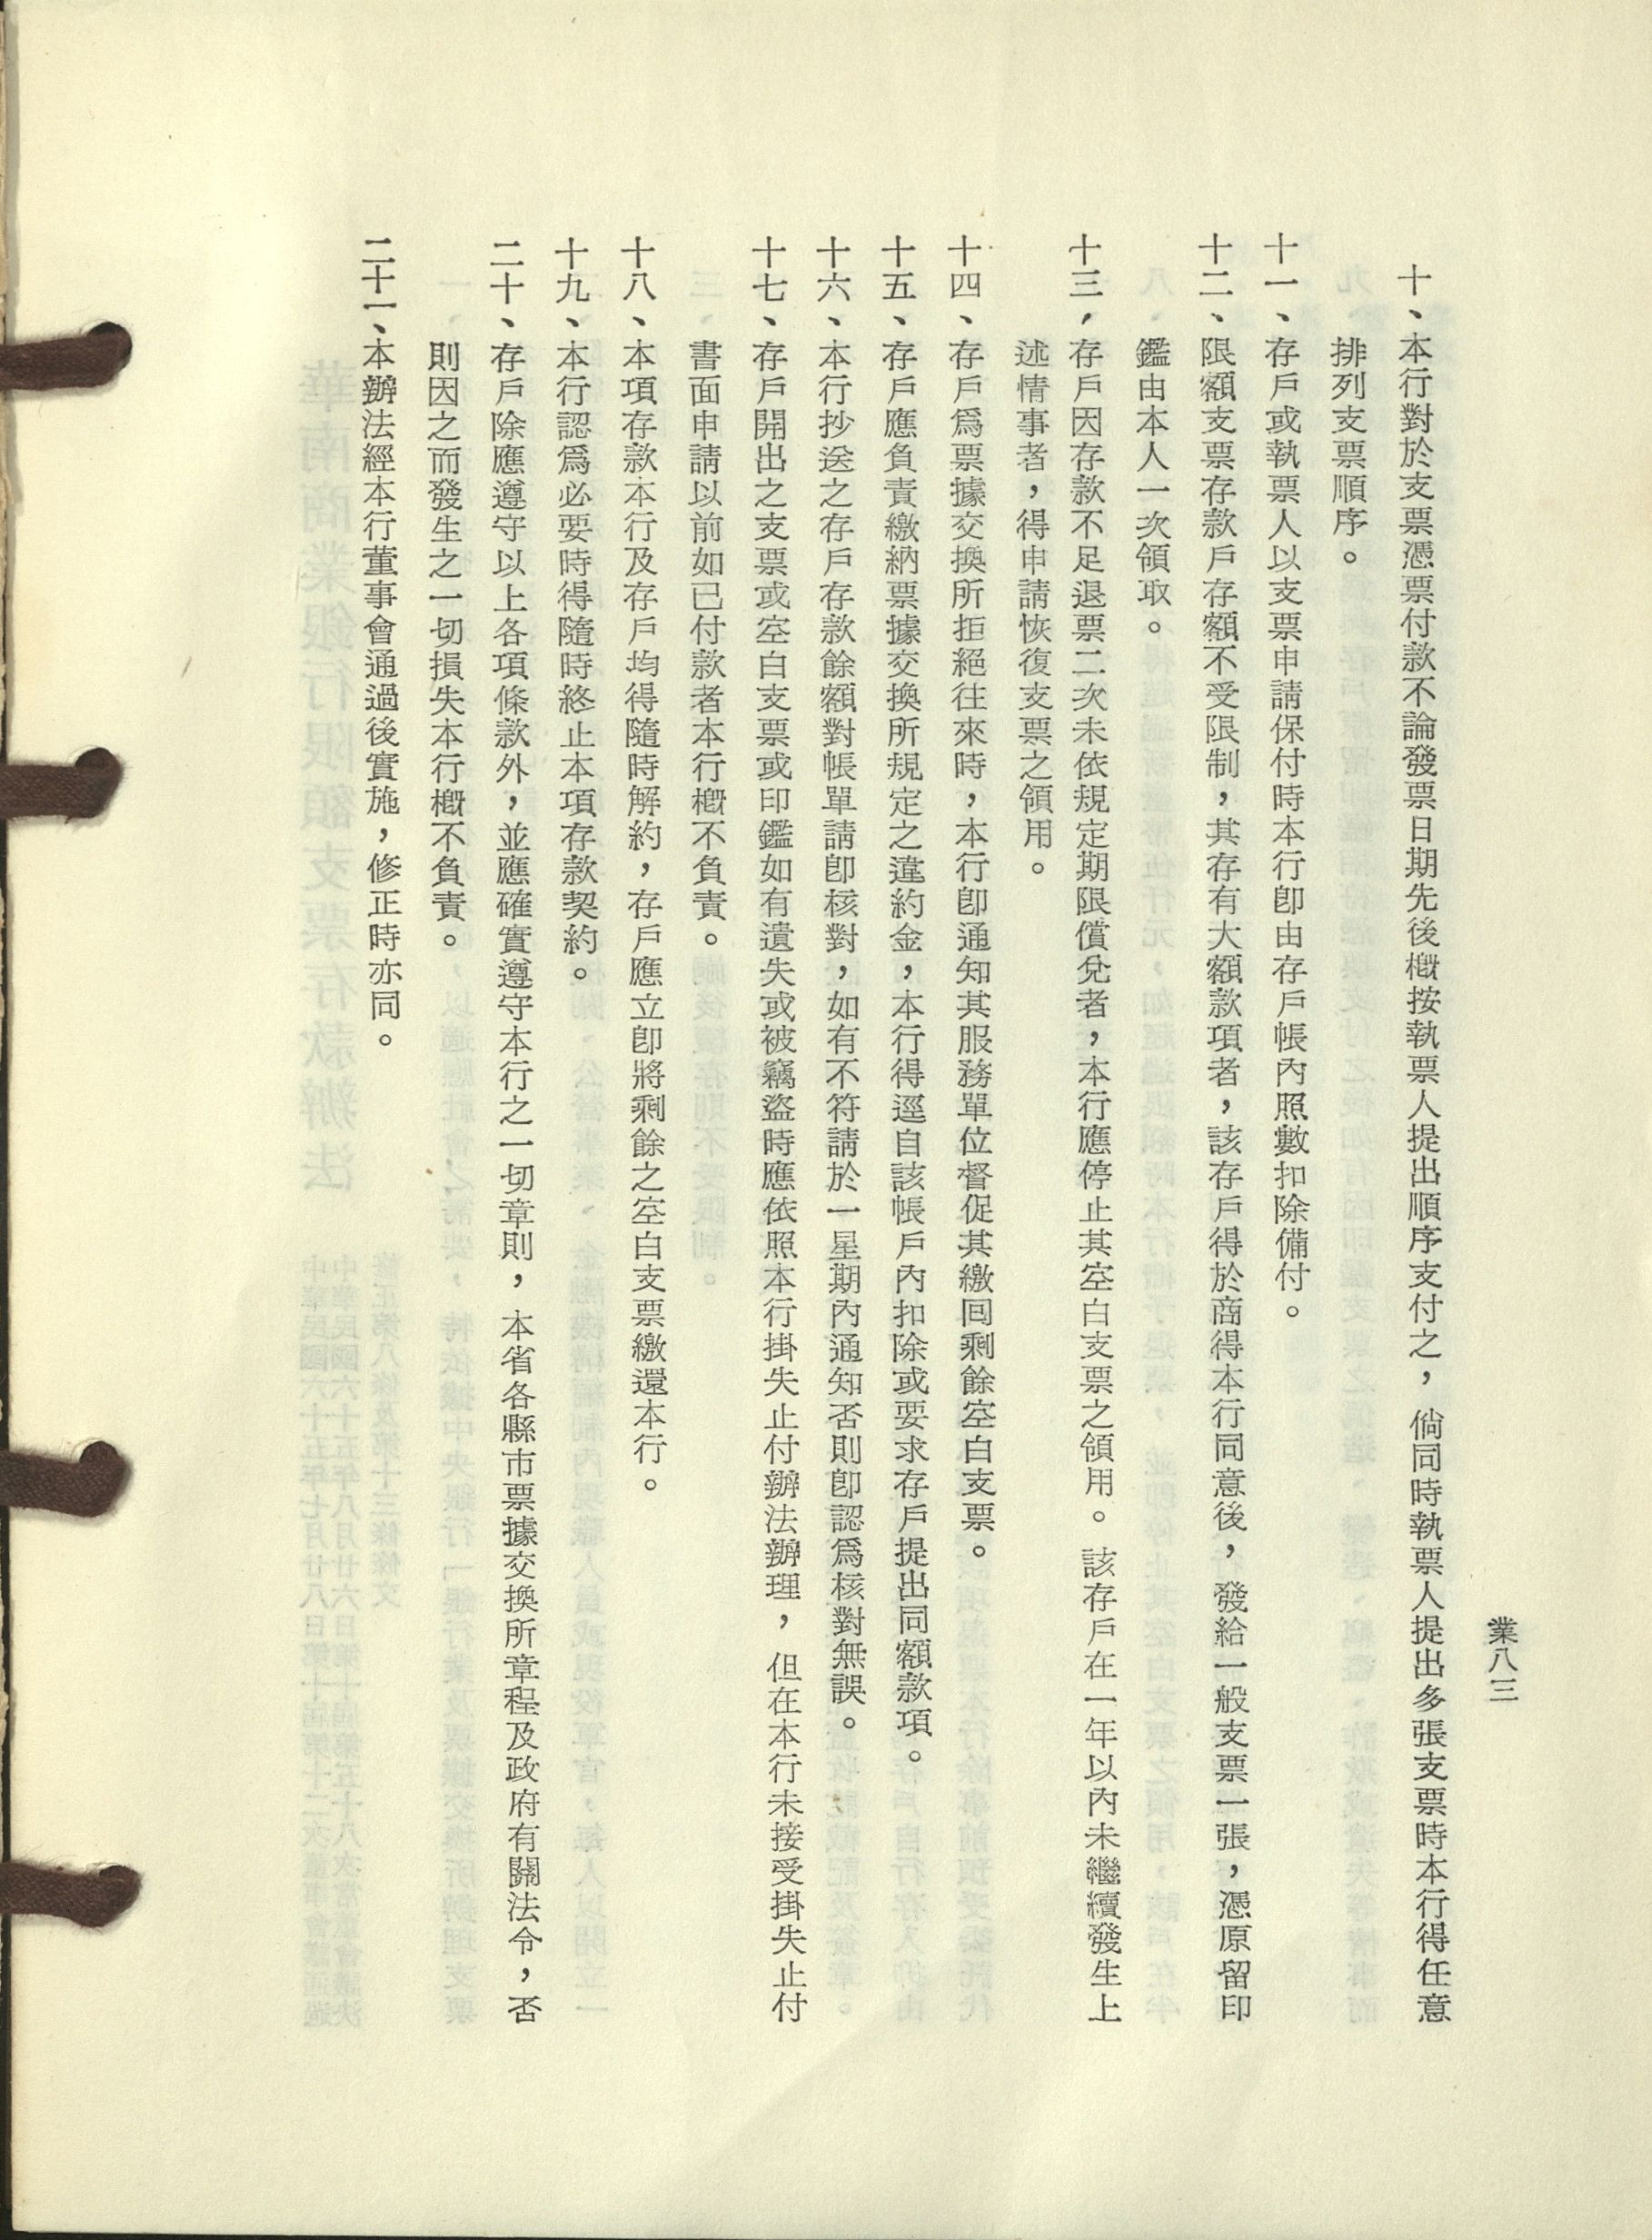 業八三
十、本行對於支票憑票付款不論發票日期先後概按執票人提出順序支付之，倘同時執票人提出多張支票時本行得任意
排列支票順序。
十一、存戶或執票人以支票申請保付時本行卽由存戶帳內照數扣除備付。
十二、限額支票存款戶存額不受限制，其存有大額款項者，該存戶得於商得本行同意後，發給一般支票一張，憑原留印
鑑由本人一次領取。
十三，存戶因存款不足退票二次未依規定期限償兌者，本行應停止其空白支票之領用。該存戶在一年以內未繼續發生上
述情事者，得申請恢復支票之領用。
十四、存戶爲票據交換所拒絕往來時，本行卽通知其服務單位督促其繳回剩餘空白支票。
十五、存戶應負責繳納票據交換所規定之違約金，本行得逕自該帳戶內扣除或要求存戶提出同額款項。
十六、本行抄送之存戶存款餘額對帳單請卽核對，如有不符請於一星期內通知否則卽認爲核對無誤。
十七、存戶開出之支票或空白支票或印鑑如有遺失或被竊盜時應依照本行掛失止付辦法辦理，但在本行未接受掛失止付
書面申請以前如已付款者本行概不負責。
十八、本項存款本行及存戶均得隨時解約，存戶應立卽將剩餘之空白支票繳還本行。
十九、本行認爲必要時得隨時終止本項存款契約。
二十、存戶除應遵守以上各項條款外，並應確實遵守本行之一切章則，本省各縣市票據交換所章程及政府有關法令，否
則因之而發生之一切損失本行概不負責。
二十一、本辦法經本行董事會通過後實施，修正時亦同。